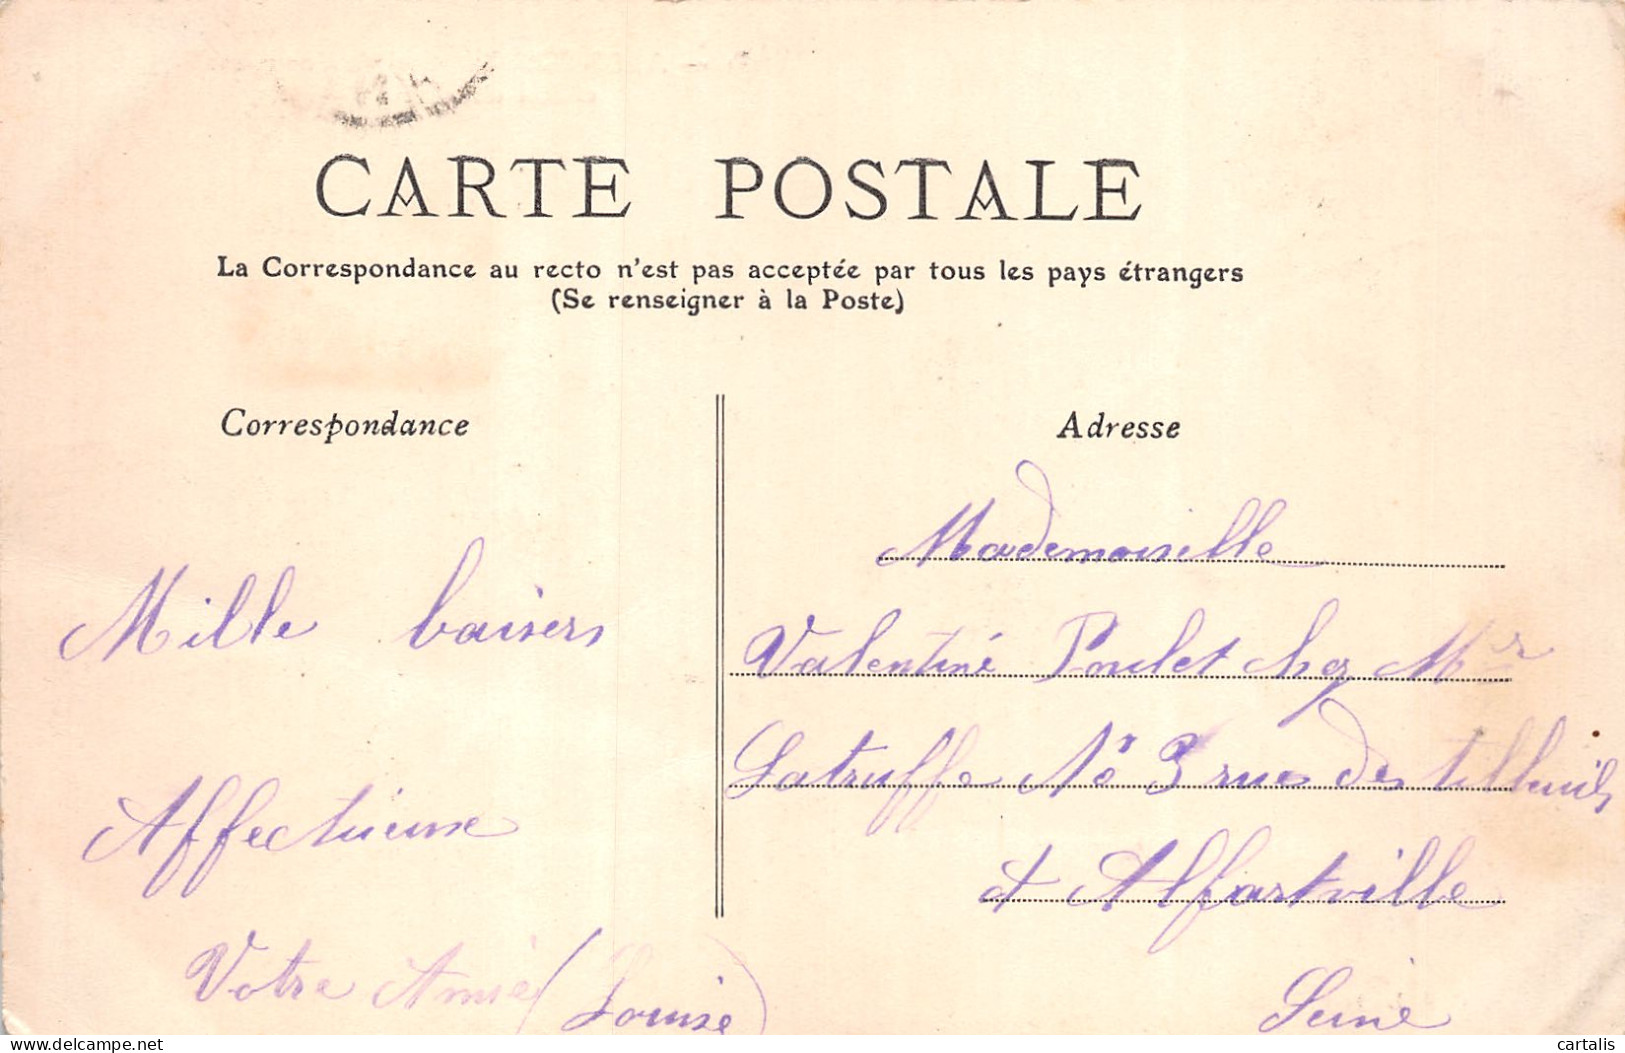 CARTE POSTALE
La Correspondance au recto n'est pas acceptée par tous les pays étrangers
(Se renseigner à la Poste)
Correspondance
Mille baisers
Affectueuse
Votre Amie (Louise)
Adresse
Mademoiselle
Valentine Poulet chez Mr
Latruffe No 3 rue des tilleuils
A Alfortville
Seine
delcampe.net
cartalis